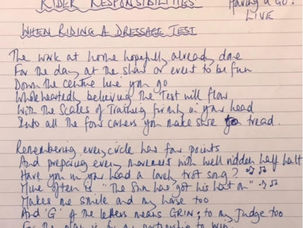 RIDER RESPONSIBILITIES
Having a GO!
LIVE
WHEN RIDING A DRESSAGE TEST
The work at home hopefully already done
For the day at the show or event to be fun
Down the centre line you go
Wholeheartedly believing the Test will flow
With the Scales of Training fresh in your head
Into all the four corners you make sure to tread.
Remembering every circle has four points
And preparing every movement with well ridden half halt
Have you in your head a lovely trot song?
Mine often is "The Sun has got his hat on"
Makes me smile and my horse too
And 'G' of the letters means GRIN; to my Judge too